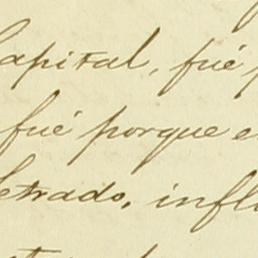 Capital, fué
fué porque
letrado, infl